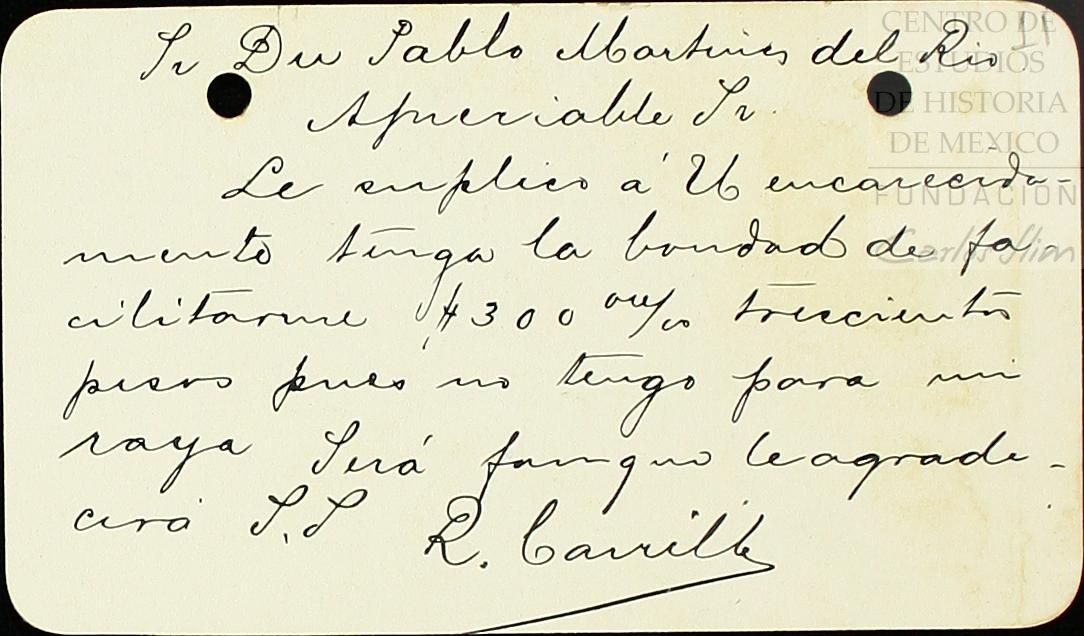 Sr Dn Pablo Martines del Rio
Apreciable Sr.
Le suplico á U encarecida-
mente tenga la bondad de fa-
cilitarme $300 oro/oo trescientos
pesos pues no tengo para mi
raya Será fam que le agrade-
cerá S.S R. Carrillo
CENTRO DE
ESTUDIOS
DE HISTORIA
DE MEXICO
FUNDACIÓN
Carlos Slim